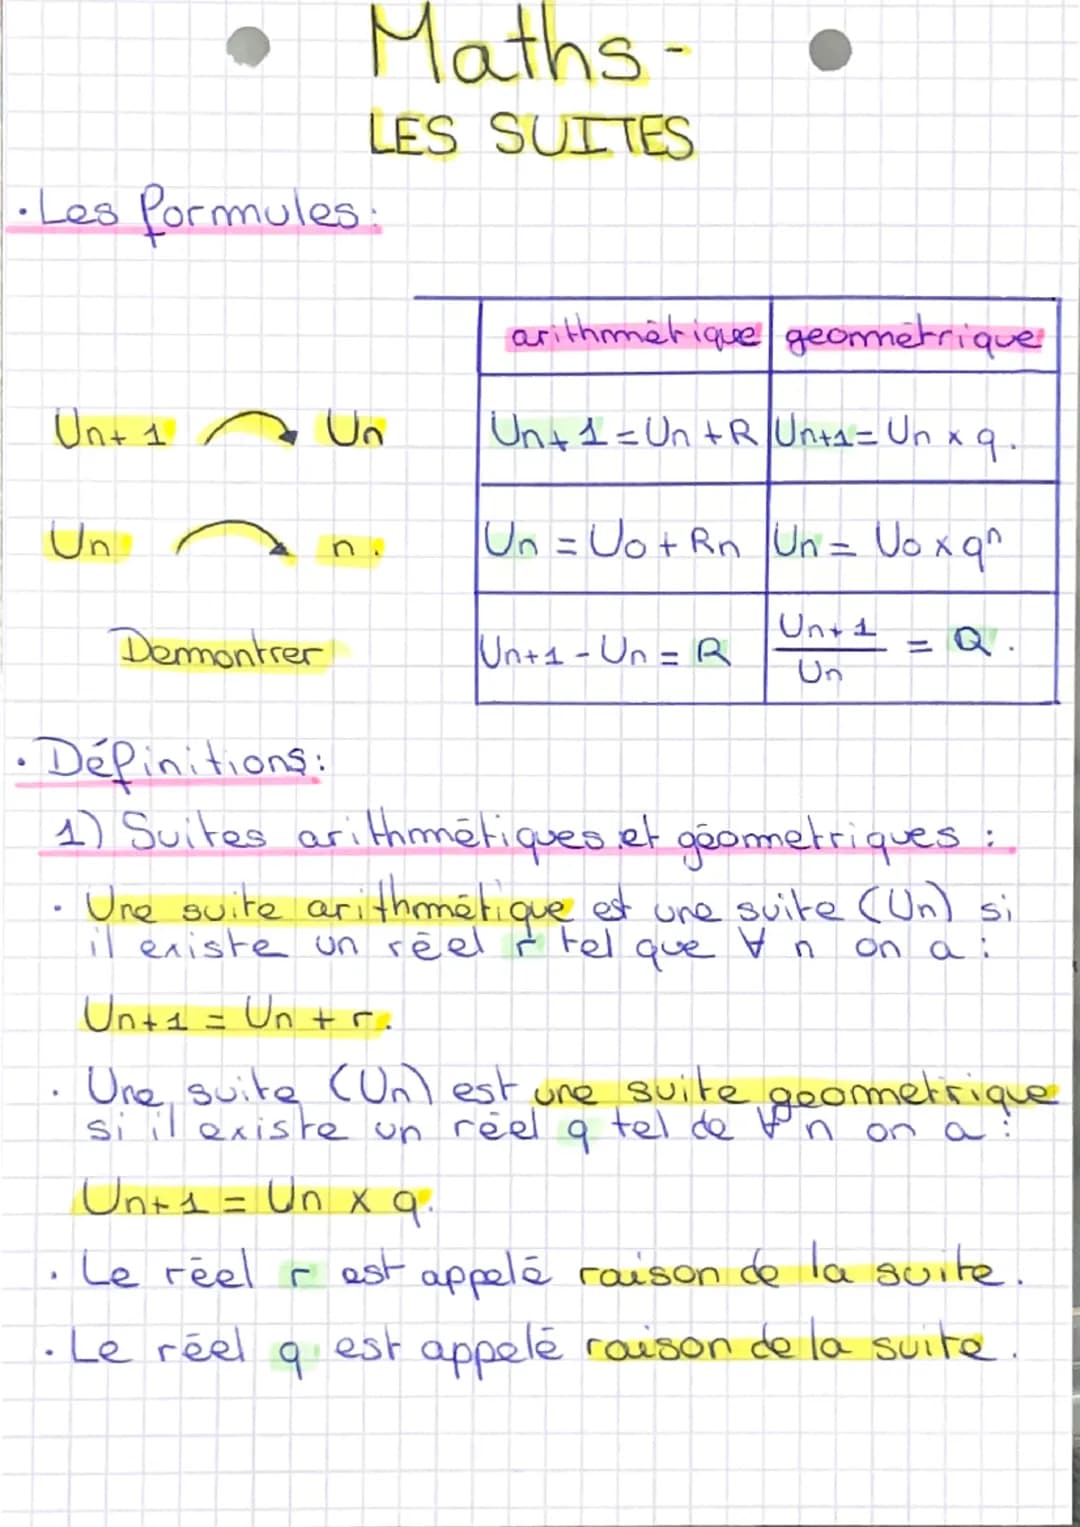 Maths -
LES SUITES
• Les formules:
arithmétique geométrique
Un+1 Un Un+1 = Un + R Un+1 = Un x q.
Un n. Un = U0 + Rn Un = U0 x qⁿ
Demontrer Un+1 - Un = R Un+1 / Un = Q.
• Définitions:
1) Suites arithmétiques et géometriques :
• Une suite arithmétique est une suite (Un) si
il existe un réel r tel que ∀ n on a :
Un+1 = Un + r.
• Une suite (Un) est une suite geometrique
si il existe un réel q tel de ∀ n on a :
Un+1 = Un x q.
• Le réel r est appelé raison de la suite.
• Le réel q est appelé raison de la suite.